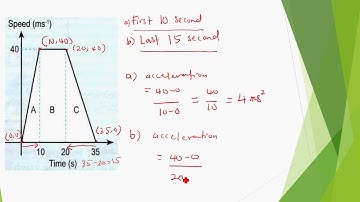 Speed (ms⁻¹)
(10,40)
40
(20,40)
A B C
(0,0)
(35,0)
0 10 20 35
Time (s) 35-20=15
a) First 10 second
b) Last 15 second
a) acceleration
= 40-0 / 10-0 = 40 / 10 = 4 ms²
b) acceleration
= 40-0 / 20